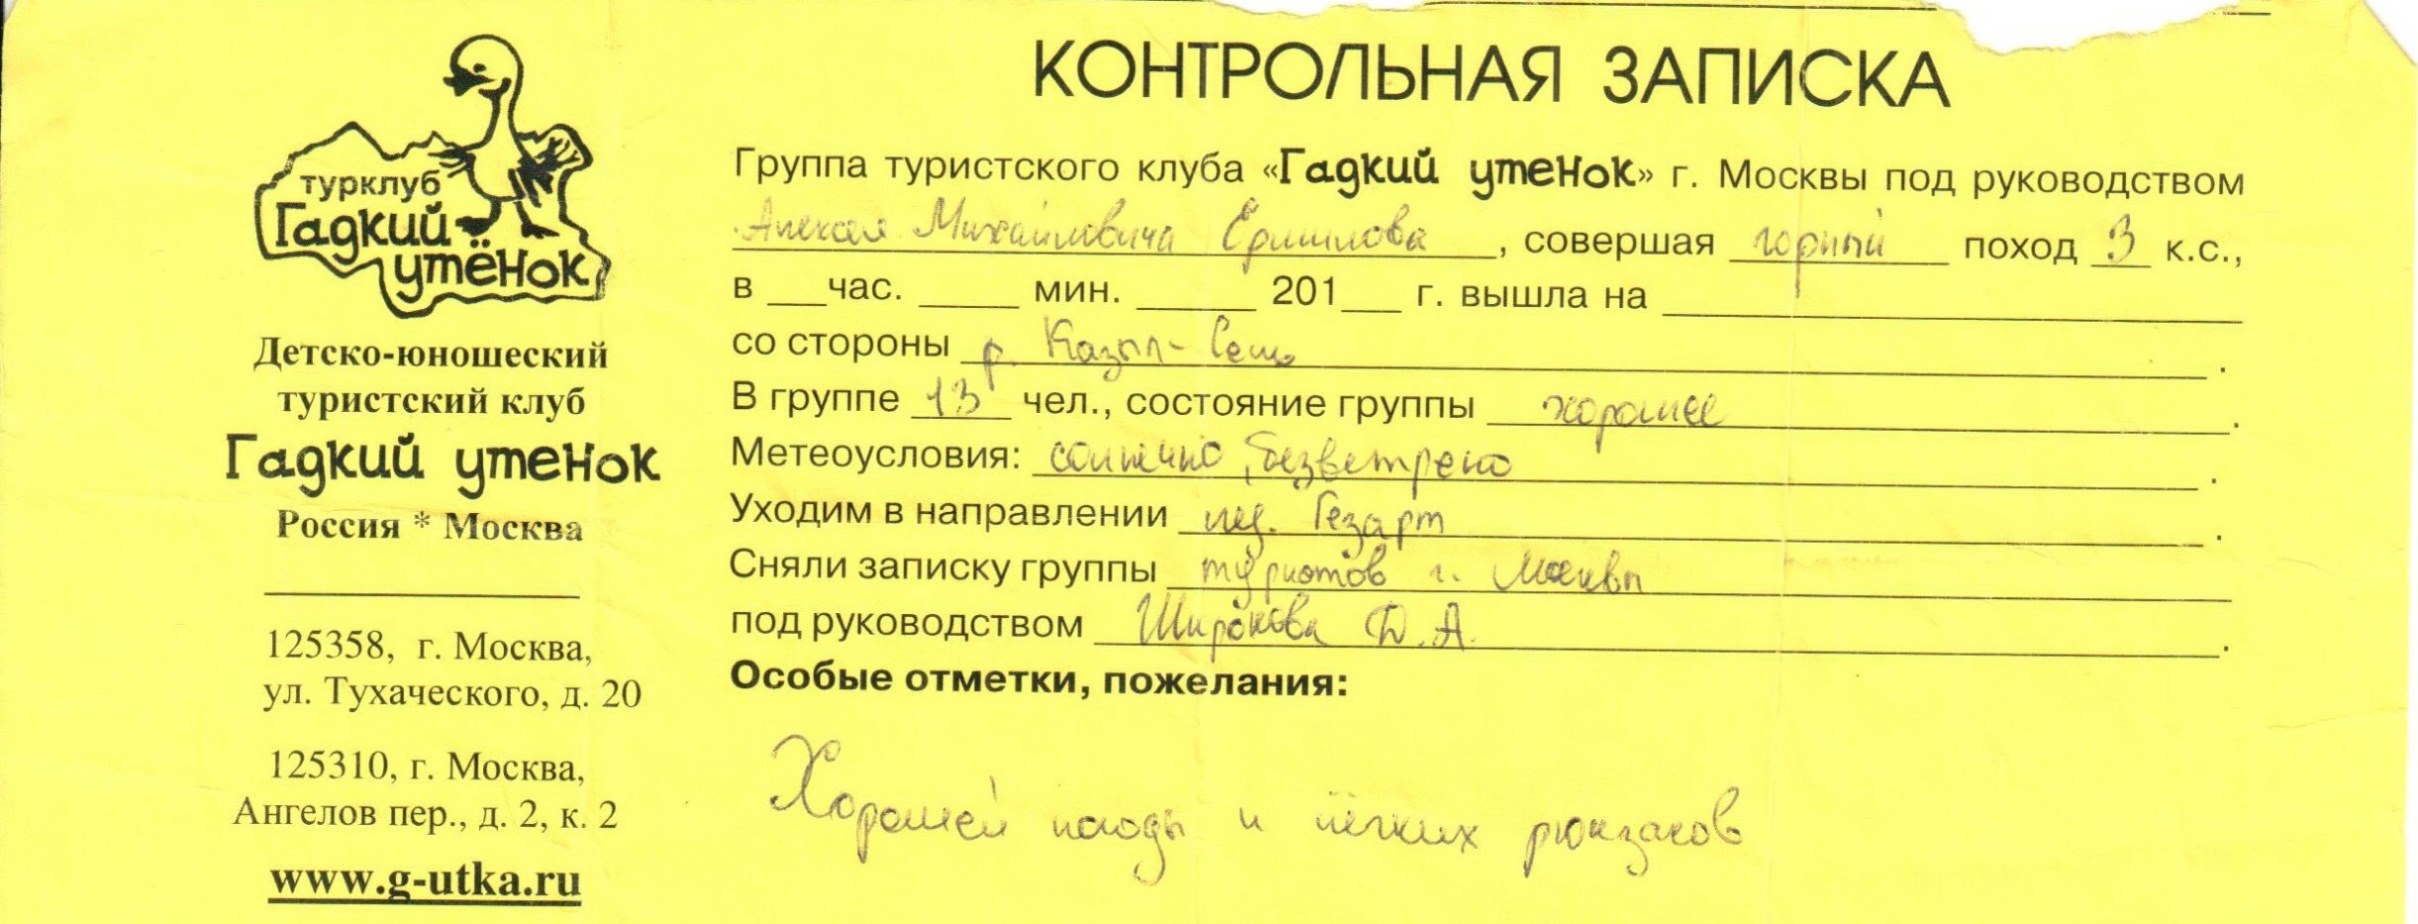 турклуб
Гадкий
утёнок
Детско-юношеский
туристский клуб
Гадкий утенок
Россия * Москва
125358, г. Москва,
ул. Тухаческого, д. 20
125310, г. Москва,
Ангелов пер., д. 2, к. 2
www.g-utka.ru
КОНТРОЛЬНАЯ ЗАПИСКА
Группа туристского клуба «Гадкий утенок» г. Москвы под руководством
Алексея Михайловича Ермилова, совершая горный поход 3 к.с.,
в ___час. _____ мин. ______ 201___ г. вышла на
со стороны р. Казыл-
В группе 13 чел., состояние группы хорошее.
Метеоусловия: солнечно, безветрено.
Уходим в направлении Гезарт.
Сняли записку группы туристов г. Москвы
под руководством Широкова Д.А.
Особые отметки, пожелания:
Хорошей погоды и лёгких рюкзаков